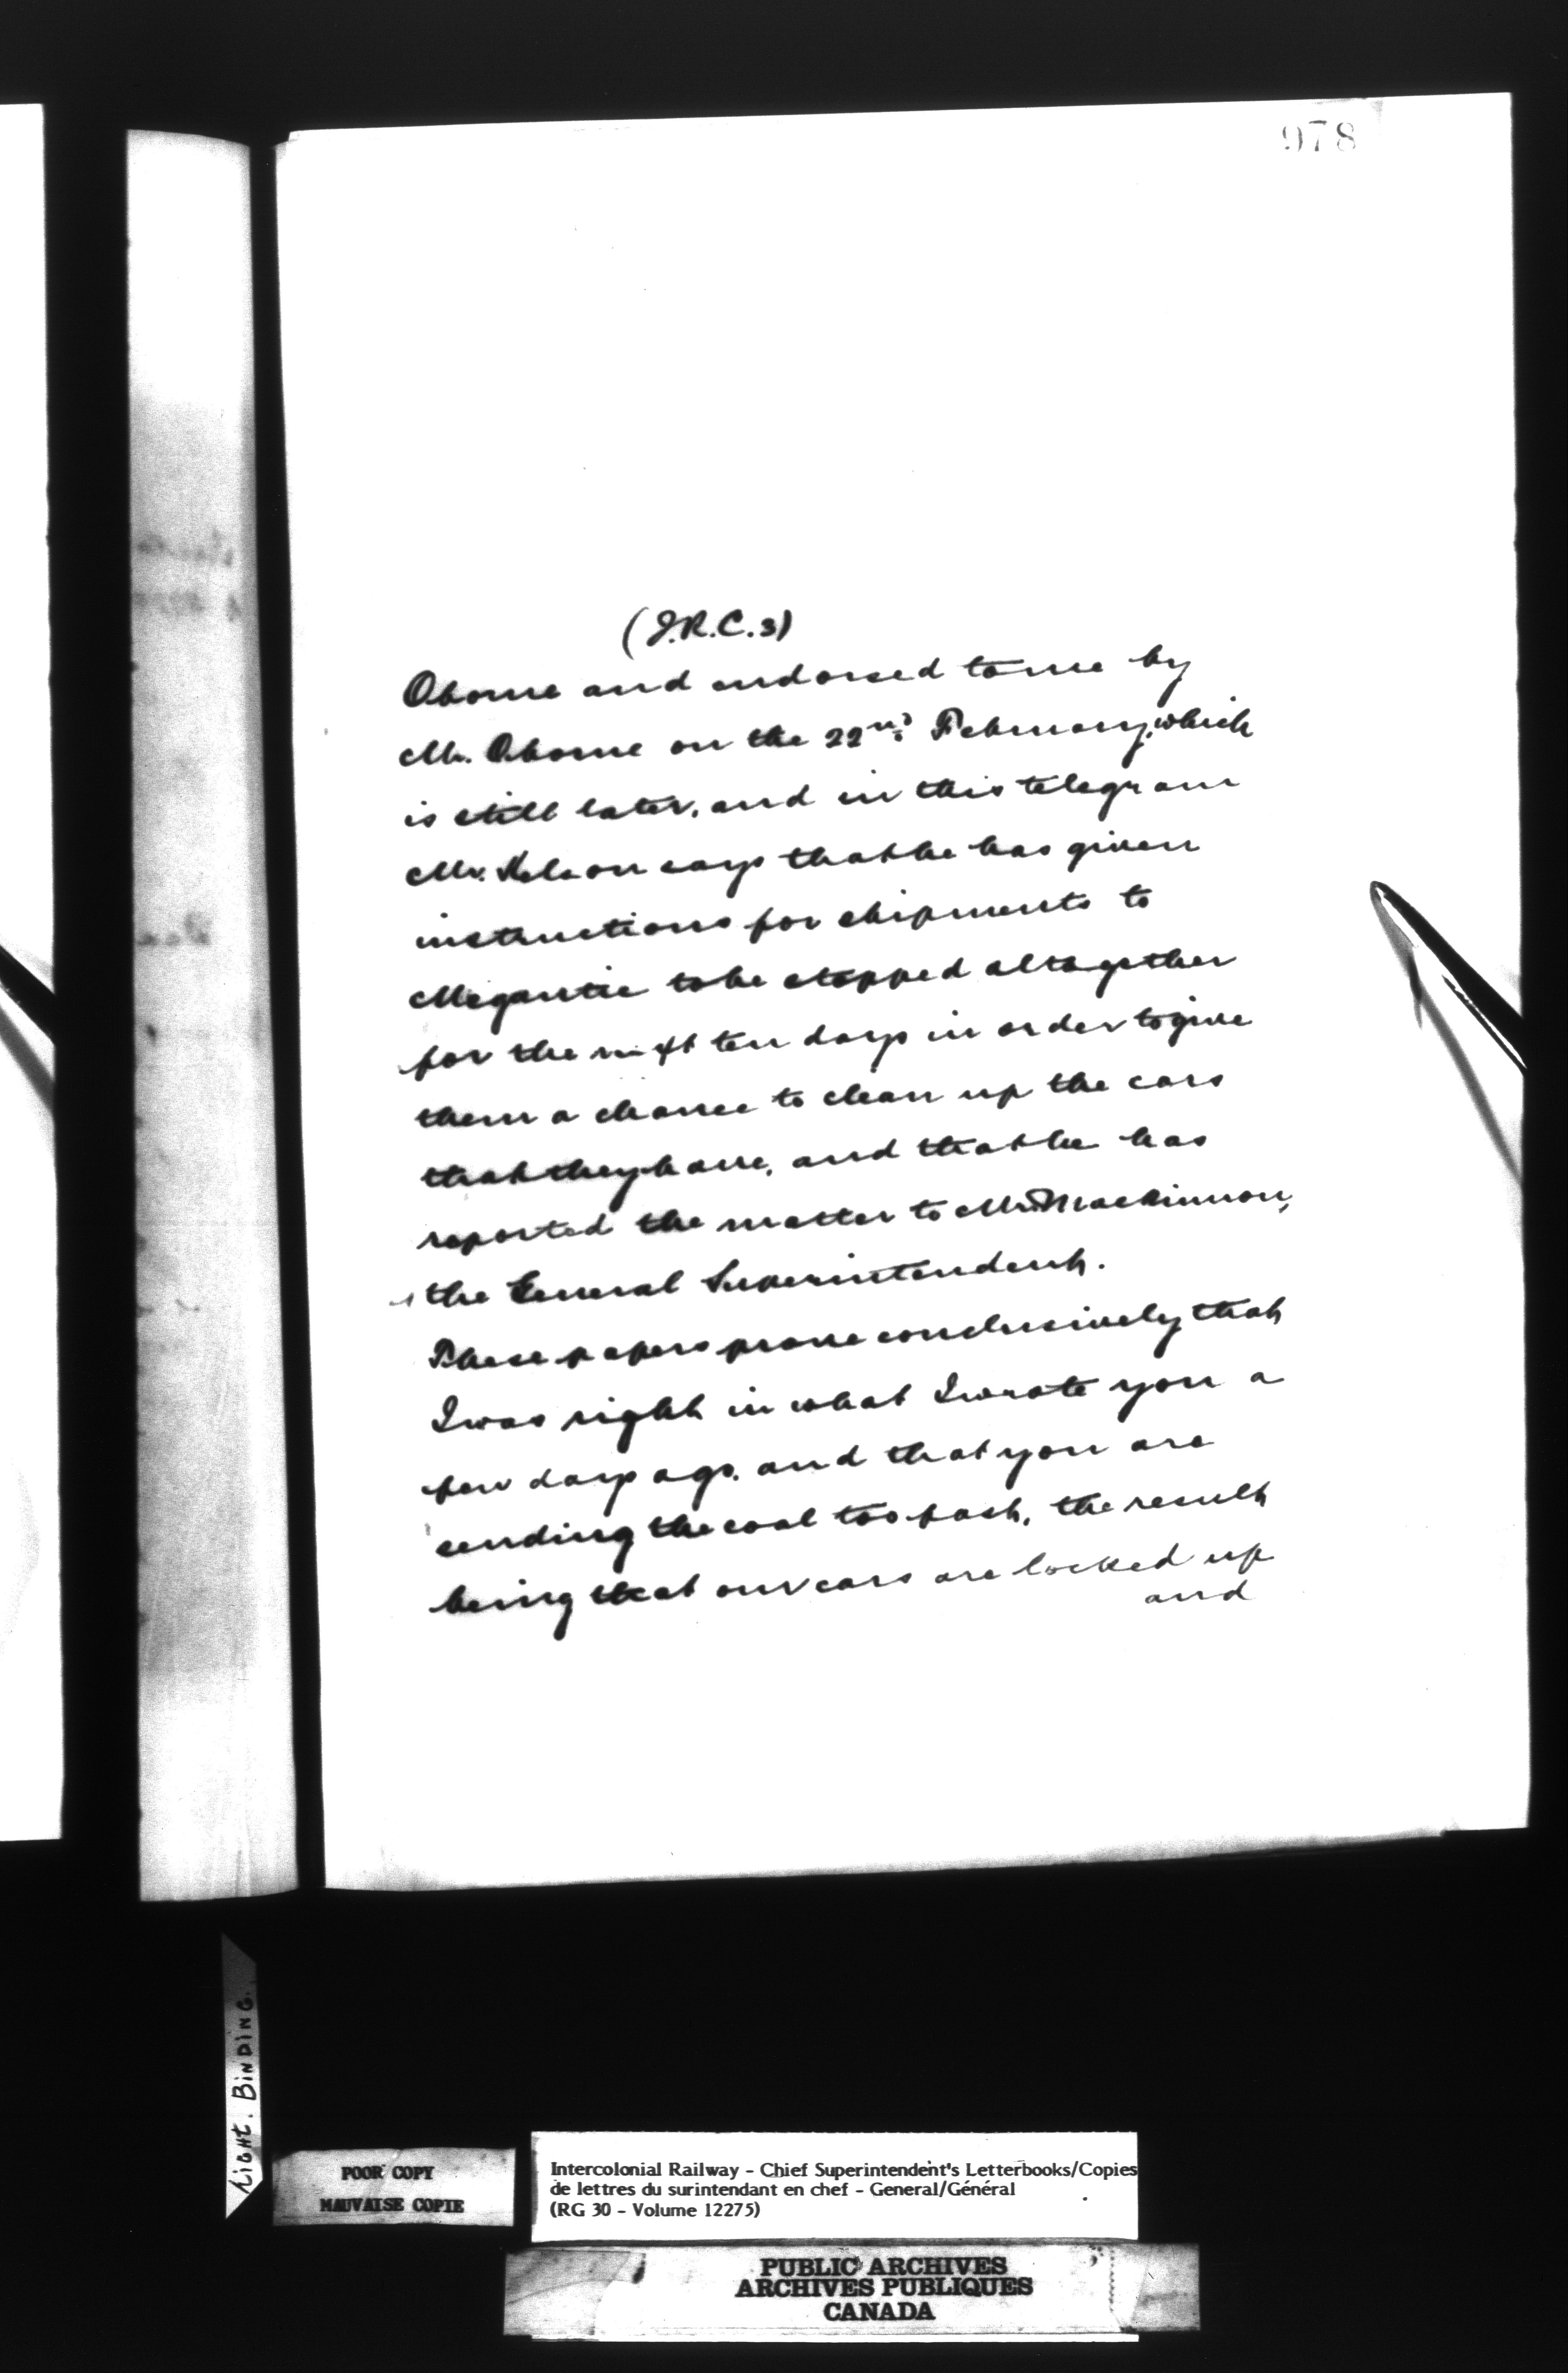 978
(J.R.C. 3)
Oborne and endorsed to me by
Mr. Oborne on the 22nd February, which
is still later, and in this telegram
Mr. says that he has given
instructions for shipments to
Megantic to be stopped altogether
for the next ten days in order to give
them a chance to clean up the cars
that they have, and that he has
reported the matter to Mr. MacKinnon,
the General Superintendent.
These papers prove conclusively that
I was right in what I wrote you a
few days ago, and that you are
sending the coal too fast, the result
being that our cars are locked up
and
Tight. BINDING.
POOR COPY
MAUVAISE COPIE
Intercolonial Railway - Chief Superintendent's Letterbooks/Copies
de lettres du surintendant en chef - General/Général
(RG 30 - Volume 12275)
PUBLIC ARCHIVES
ARCHIVES PUBLIQUES
CANADA